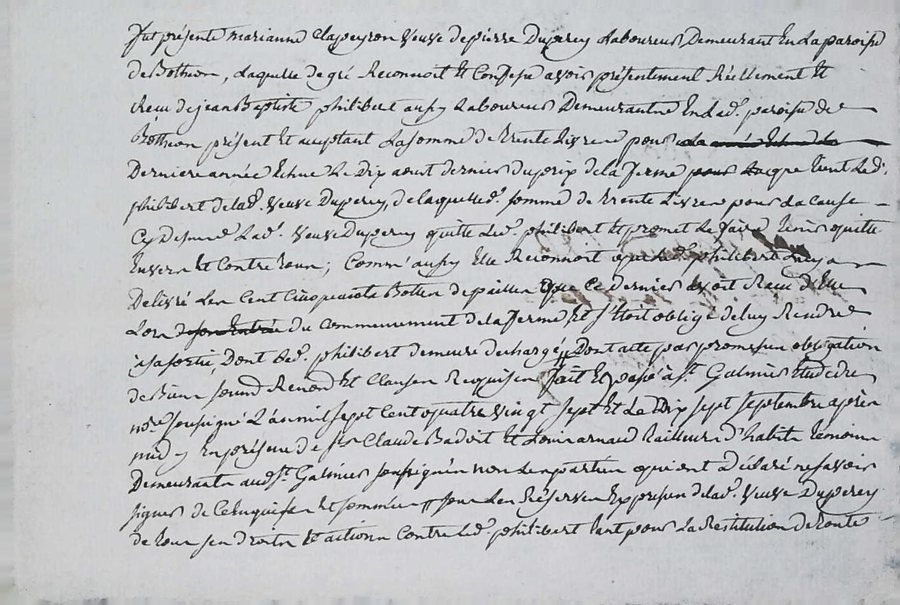 fut présente marianne Clapeyron Veuve de pierre Duperey Laboureur Demeurant En La paroisse
de Bothéon, Laquelle de gré Reconnoit Et Confesse avoir présentement Réellement Et
Recu de jean Baptiste philibert aussy Laboureur Demeurant En Lad. paroisse de
Bothéon présent Et acceptant La somme de trente Livres pour
Derniere année Echue Le Dix aout dernier du prix de la ferme que tient Led.
philibert de lad. Veuve Duperey, de laquelle d. somme de trente Livres pour La Cause
Cy Dessus Lad. Veuve Duperey quitte Led. philibert Et promet Le faire tenir quitte
Envers Et Contre tous; Comm'aussy Elle Reconnoit que Led. philibert luy a
Delivré Les Cent Cinquante Bottes de paille que Ce dernier avoit Recu d'Elle
Lors du Commencement de la ferme, Et s'Etoit obligé de luy Rendre
à sa sortie, Dont Led. philibert demeure dechargé, Dont acte par promesses obligation
de Biens soumd. Renond. Et Clauses Requises fait Et passé à St. Galmier Etude du
no.re soussigné L'an mil sept Cent quatre Vingt sept Et Le Dix sept septembre après
midy En présence de srs Claude Badoit Et Louis arnaud tailleur d'habits temoins
Demeurants aud. St. Galmier soussignés non Les parties qui ont déclaré ne savoir
signer de Ce Enquises Et sommées sous Les Réserves Expresses de lad. Veuve Duperey
de tous ses droits Et actions Contre Led. philibert tant pour La Restitution de toute